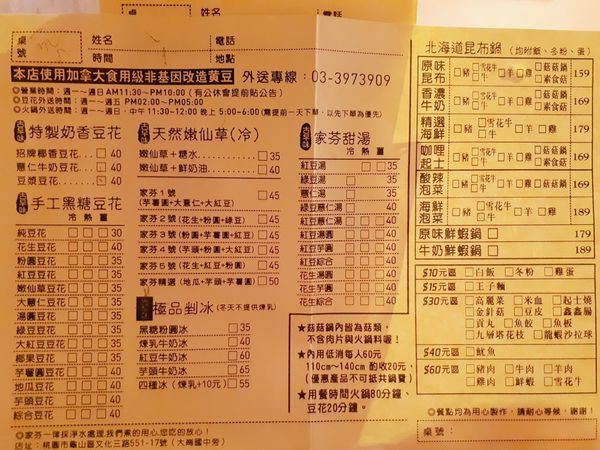 桌號
姓名
電話
時間
地點
本店使用加拿大食用級非基因改造黃豆 外送專線：03-3973909
◎營業時間：週一～週日AM11:30～PM10:00 (有公休會提前貼公告)
◎豆花外送時間：週一～週五 PM02:00～PM05:00
◎火鍋外送時間：週一～週日，中午11:30～12:00 晚上 5:00～6:00(需提前一天下單，以先下單為主)
特製奶香豆花
招牌椰香豆花....□ 40
薏仁牛奶豆花....□ 40
豆漿豆花..........□ 40
手工黑糖豆花
冷 熱 薑
純豆花 □□□ 30
花生豆花 □□□ 40
粉圓豆花 □□□ 40
紅豆豆花 □□□ 40
嫩仙草豆花 □□□ 40
大薏仁豆花 □□□ 40
湯圓豆花 □□□ 40
綠豆豆花 □□□ 40
大紅豆豆花 □□□ 40
椰果豆花 □□□ 40
芋薯圓豆花 □□□ 40
地瓜豆花 □□□ 40
芋頭豆花 □□□ 40
綜合豆花 □□□ 40
天然嫩仙草(冷)
嫩仙草＋糖水 □35
嫩仙草＋鮮奶油 □40
家芬 1 號 □45
(芋薯圓+大薏仁+大紅豆)
家芬 2 號 (花生+粉圓+綠豆) □45
家芬 3 號 (粉圓+芋薯圓+紅豆) □45
家芬 4 號 (芋頭+粉圓+大紅豆) □45
家芬 5 號 (花生+紅豆+粉圓) □45
家芬精選 (地瓜+芋頭+芋薯圓) □50
極品剉冰 (冬天不提供煉乳)
黑糖粉圓冰 □35
煉乳牛奶冰 □50
紅豆牛奶冰 □60
芋頭牛奶冰 □65
四種冰 (煉乳+10元) □55
家芬甜湯
冷 熱 薑
紅豆湯 □□□35
綠豆湯 □□□35
薏仁湯 □□□35
綠豆薏仁湯 □□□35
紅豆薏仁湯 □□□35
紅豆湯圓 □□□35
紅豆芋圓 □□□35
紅豆綜合 □□□40
花生湯圓 □□□35
花生芋圓 □□□35
花生綜合 □□□40
★菇菇鍋內皆為菇類，
不含肉片與火鍋料喔！
★內用低消每人60元
110cm～140cm 酌收20元，
(優惠產品不可抵共鍋費)
★用餐時間火鍋80分鐘、
豆花20分鐘。
◎家芬一律採淨水處理,我們煮的用心,您吃的放心！
店址：桃園市龜山區文化三路551-17號（大崗國中旁）
北海道昆布鍋 (均附飯、冬粉、蛋)
原味昆布 □豬□雪花牛□羊□雞□菇菇鍋□素食鍋 159
香濃牛奶 □豬□雪花牛□羊□雞□菇菇鍋 169
精選海鮮 □豬□雪花牛□羊□雞 179
咖哩起士 □豬□雪花牛□羊□雞□菇菇鍋□素食鍋 169
酸辣泡菜 □豬□雪花牛□羊□雞□菇菇鍋 169
海鮮泡菜 □豬□雪花牛□羊□雞 189
原味鮮蝦鍋 □ 179
牛奶鮮蝦鍋 □ 189
$10元區 □白飯 □冬粉 □雞蛋
$15元區 □王子麵
$30元區 □高麗菜 □米血 □起士燒
□金針菇 □豆皮 □鑫鑫腸
□貢丸 □魚餃 □魚板
□九層塔花枝 □龍蝦沙拉球
$40元區 □魷魚
$60元區 □豬肉 □牛肉 □羊肉
□雞肉 □鮮蝦 □雪花牛
◎餐點均為用心製作，請耐心等候，謝謝！
桌號：